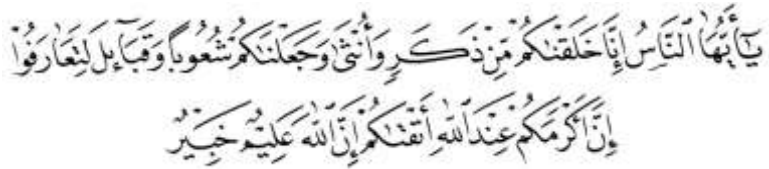 يَٰٓأَيُّهَا ٱلنَّاسُ إِنَّا خَلَقْنَٰكُم مِّن ذَكَرٍ وَأُنثَىٰ وَجَعَلْنَٰكُمْ شُعُوبًا وَقَبَآئِلَ لِتَعَارَفُوٓا۟
إِنَّ أَكْرَمَكُمْ عِندَ ٱللَّهِ أَتْقَىٰكُمْ إِنَّ ٱللَّهَ عَلِيمٌ خَبِيرٌ